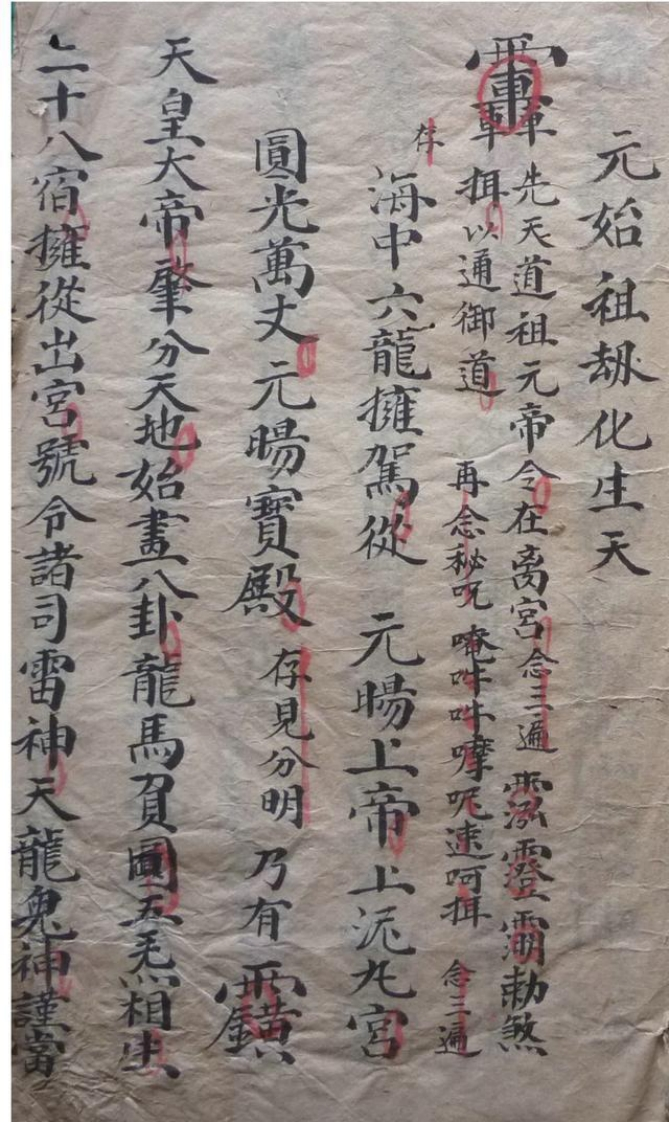 元始祖劫化生天
先天道祖元帝令在离宮念三遍 勅煞
揖以通御道 再念秘咒 唵吽吽嚤呢速呵揖 念三遍
存
海中六龍擁駕從 元暘上帝上泥丸宮
圓光萬丈元暘寶殿 存見分明 乃有
天皇大帝肇分天地始畫八卦龍馬負圖五炁相生
二十八宿擁從出宮號令諸司雷神天龍鬼神謹當